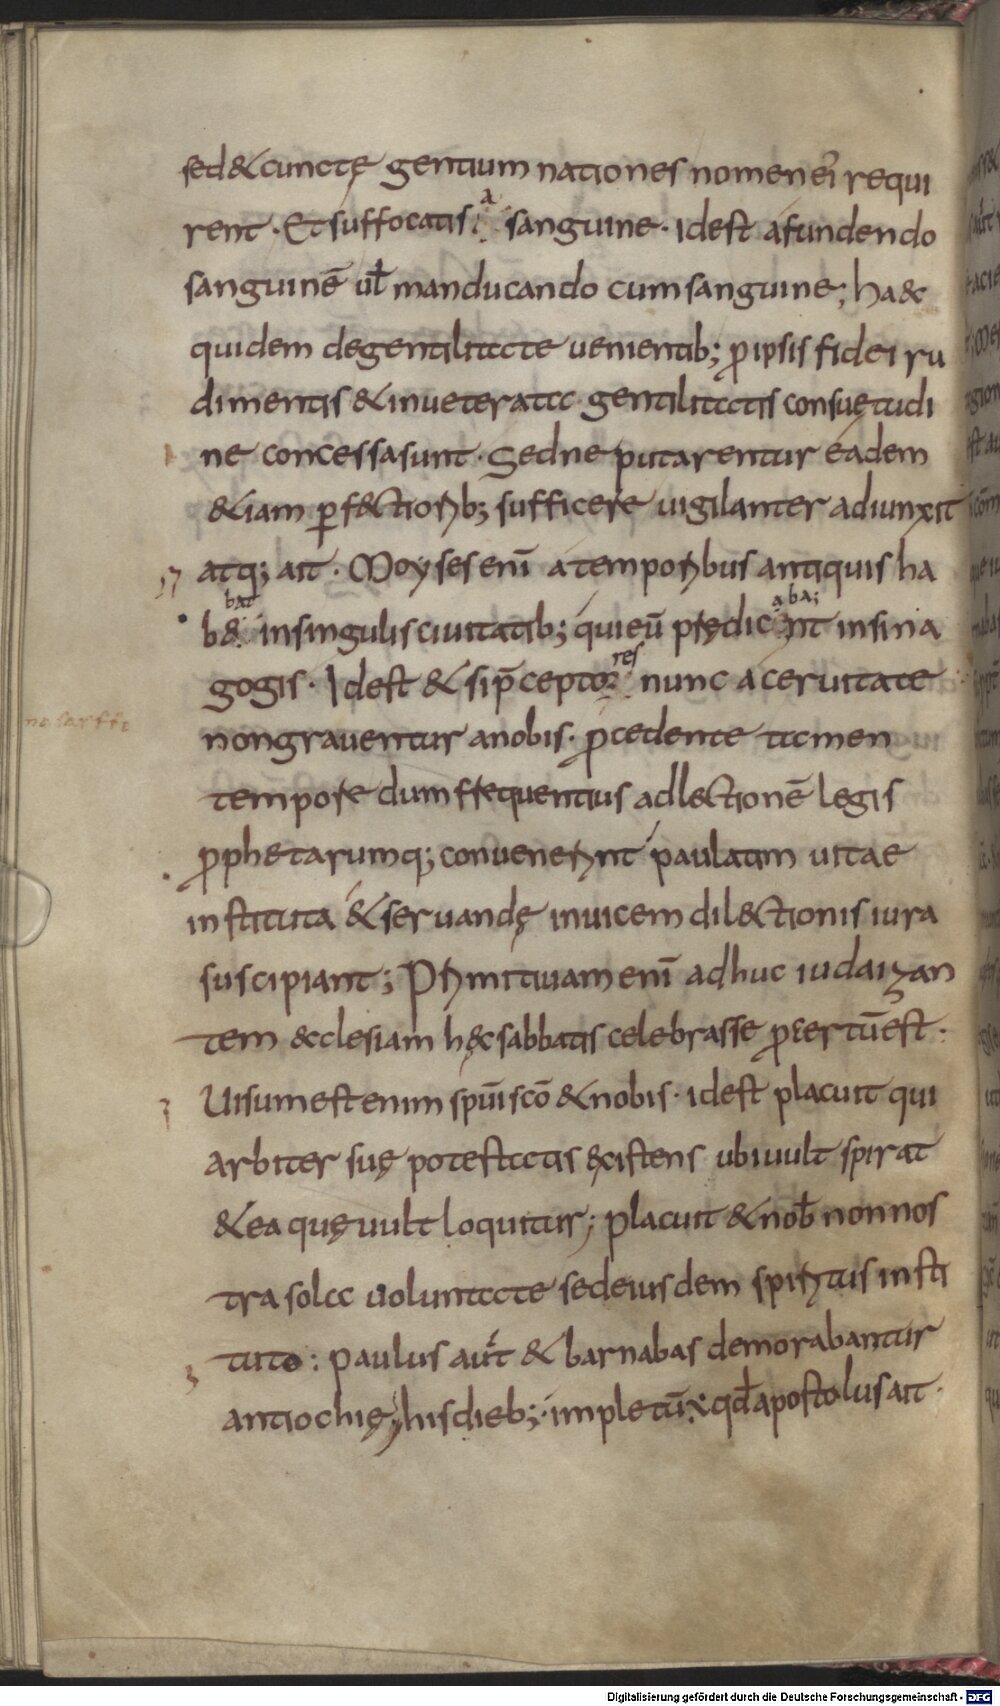 sed & cunctę gentium nationes nomen eī requi
rent · Et suffocatis a sanguine · id est a fundendo
sanguinē uł manducando cum sanguine ; ha&c
quidem de gentilitate uenientib; p̱ ipsis fidei ru
dimentis & inueterata gentilitatis consuętudi
ne concessa sunt · Sed ne putarentur eadem
&iam perf&ctiorib; sufficere uigilanter adiunxit
atq; ait · Moyses enī a temporibus antiquis ha
b& bat in singulis ciuitatib; qui eū prędicent aba; in sina
gogis · Id est & si p̄ceptores nunc aceruitate
non grauentur a nobis · procedente tamen
tempore dum frequentius ad lectionē legis
prophetarumq; conuenerint paulatim uitae
instituta & seruandę inuicem dil&ctionis iura
suscipiant ; Primitiuam enī adhuc iudaizan
tem &cclesiam hęc sabbatis celebrasse p̱certū est ·
Uisum est enim spūi scō & nobis · id est placuit qui
arbiter suę potestatis existens ubi uult spirat
& ea quę uult loquitur ; placuit & nob̄ non nos
tra sola uoluntate sed eiusdem spiritus insti
tuto : paulus aut̄ & barnabas demorabantur
antiochię ; his dieb; impletū · qđ apostolus ait ·